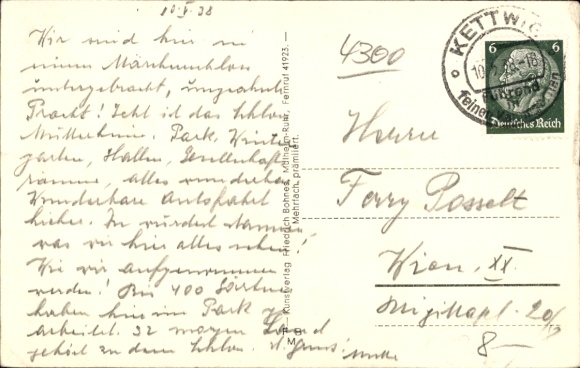 10.V.38
Wir sind hier in
einem Märchenschloss
untergebracht, ungeahnte
Pracht! Echt ist das Schloss
Park, Winter
garten, Hallen, Gesellschafts
räume, alles wunderbar
Wunderbare Autofahrt
hieher. Du würdest staunen
was wir hier alles sehen!
Wie wir aufgenommen
werden! Bis 400 Gärtner
haben hier im Park ge
arbeitet. 32 morgen Land
gehört zu dem Schloss.
Kunstverlag Friedrich Bohnes, Mülheim-Ruhr, Fernruf 41923. —
Mehrfach prämiiert.
4300
KETTWIG
10.
6 6
Deutsches Reich
Herrn
Ferry Posselt
Wien, XX
20/
8—